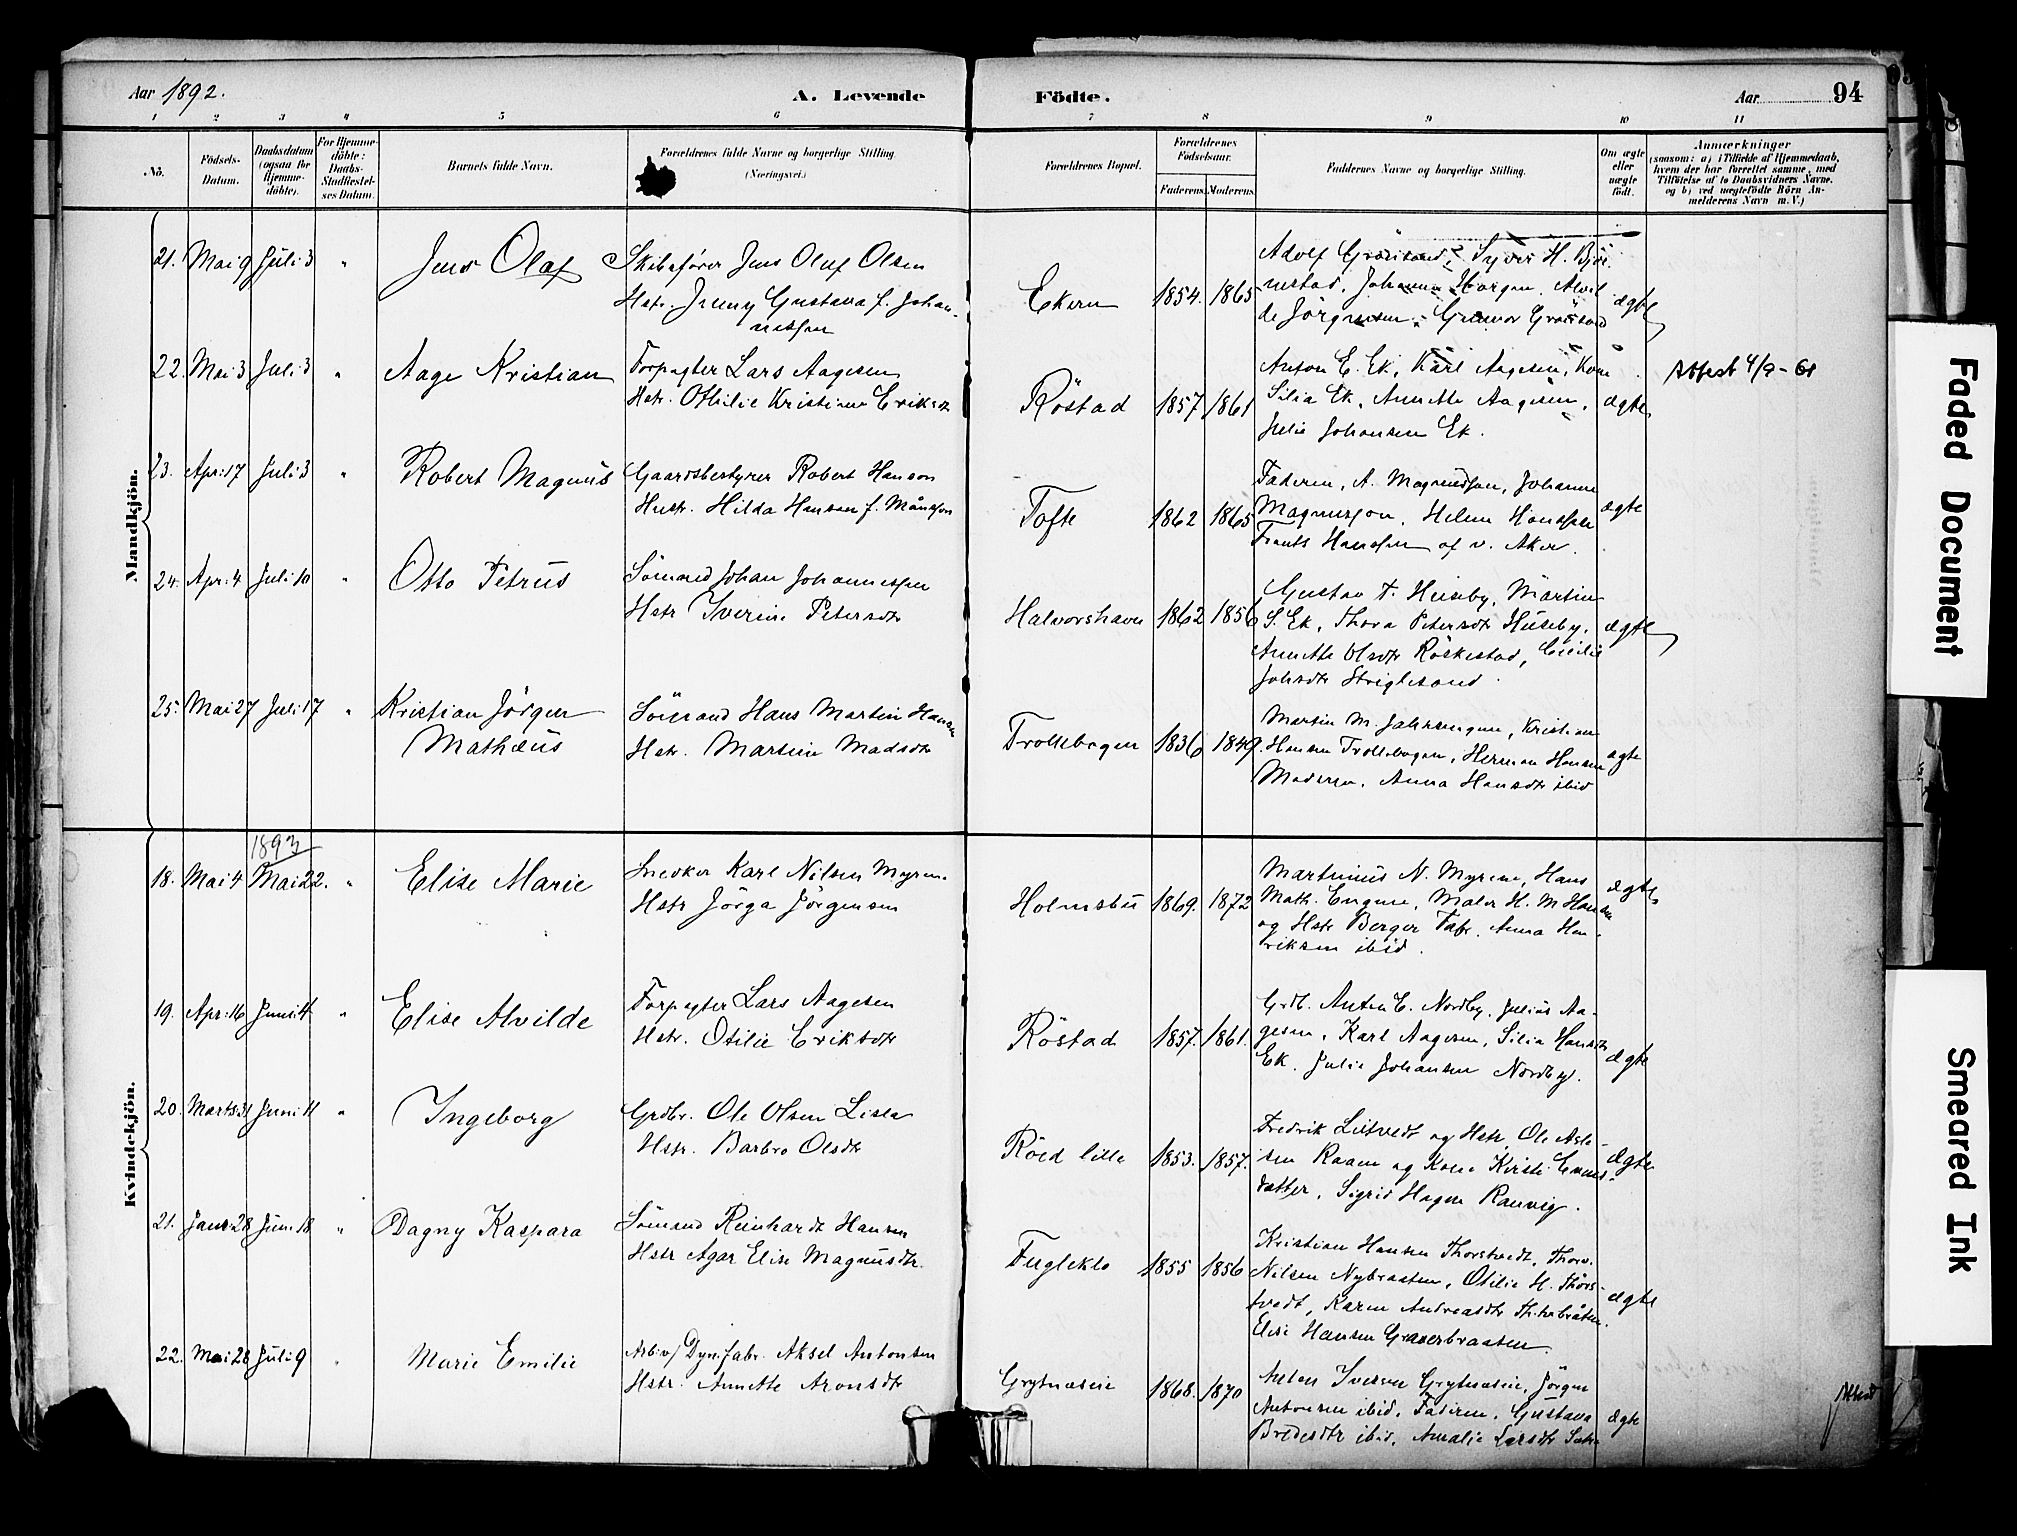 Aar 1892.
A. Levende
Födte.
Aar
94
1 2 3 4 5 6 7 8 9 10 11
No.
Födsels-
Datum.
Daabsdatum
(ogsaa for
Hjemme-
döbte).
For Hjemme-
döbte:
Daabs-
Stadfæstel-
ses Datum.
Barnets fulde Navn.
Forældrenes fulde Navne og borgerlige Stilling
(Næringsvei.)
Forældrenes Bopæl.
Forældrenes
Födselsaar.
Faderens. Moderens.
Faddernes Navne og borgerlige Stilling.
Om ægte
eller
uægte
födt.
Anmærkninger
(saasom: a) i Tilfælde af Hjemmedaab,
hvem der har forrettet samme, med
Tilföielse af to Daabsvidners Navne.
og b) ved uægtefödte Börn An-
melderens Navn m. V.)
Mandkjön.
21. Mai 9 Juli 3 " Jens Olaf
Skibsfører Jens Oluf Olsen
Hstr. Jenny Gustava f. Johan-
nessen
Ekern 1854. 1865
Adolf Syver H. Bjør-
nstad, Johanna Horgen, Alvil-
de Jörgensen, Gunnor
ægte
22. Mai 3 Juli 3 " Aage Kristian
Forpagter Lars Aagesen
Hstr. Othilie Kristine Eriksdtr
Röstad 1857 1861
Anton E. Ek, Karl Aagesen, Kone
Silia Ek, Annette Aagesen,
Julie Johansen Ek.
ægte
Attest 4/9-61
23. Apr. 17 Juli 3 " Robert Magnus
Gaardsbestyrer Robert Hanson
Hustr. Hilda Hansen f. Månsson
Tofte 1862 1865
Faderen, A. Magnusson, Johanne
Magnusson, Helene Hanssen
Frants Hanssen af v. Aker.
ægte
24. Apr. 4 Juli 10 " Otto Petrus
Sömand Johan Johannessen
Hstr Iverine Petersdtr
Halvorshavn 1862 1856
Gustav T. Huseby, Martin
S. Ek, Thora Petersdtr Huseby,
Annette Olsdtr Röskestad, Cecilie
Johsdtr Striglesand.
ægte
25. Mai 27 Juli 17 " Kristian Jörgen
Mathæus
Sömand Hans Martin Hansen
Hstr. Martine Madsdtr
Trollebogen 1836 1849.
Martin M. Kristian
Hansen Trollebogen, Herman Hansen
Moderen, Anna Hansdtr ibid
ægte
Kvindekjön.
1893
18. Mai 4 Mai 22. " Elise Marie
Snedker Karl Nilsen Myren.
Hstr Jörga Jörgensen
Holmsbu 1869. 1872
Martinius N. Myrene, Hans
Math. Engene, Maler H. M Hansen
og Hstr Berger Anna Hen-
riksen ibid.
ægte
19. Apr. 16 Juni 4 " Elise Alvilde
Forpagter Lars Aagesen
Hstr. Otilie Eriksdtr
Röstad 1857. 1861.
Grdb. Anton E. Nordby, Julius Aa-
gesen, Karl Aagesen, Silia Hansdtr
Ek. Julie Johansen Nordby.
ægte
20. Marts 31 Juni 11 " Ingeborg
Grdbr. Ole Olsen Lisla
Hstr. Barbro Olsdtr
Röed lille 1853. 1857.
Fredrik Lutvedt og Hstr, Ole Asle-
sen Raaen og Kone Kirsti
datter, Sigrid Hagen Rauvig.
Ægte
21. Janr. 28 Juni 18 " Dagny Kaspara
Sömand Reinhardt Hansen
Hstr Agar Elise Magnusdtr.
Fugleklo 1855 1856
Kristian Hansen Thorstvedt, Thorv.
Nilsen Nybraaten, Otilie H. Thors-
tvedt, Karen Andreasdtr
Elise Hansen Graverbraaten.
ægte
22. Mai 28 Juli 9 " Marie Emilie
Arb. v/ Dyn.fabr. Aksel Antonsen
Hstr. Annette Aronsdtr
Grytnæseie 1868. 1870
Anton Iversen Grytnæseie, Jörgen
Antonsen ibid, Faderen, Gustava
Bredesdtr ibid, Amalie Larsdtr
ægte
Attest
Faded Document
Smeared Ink